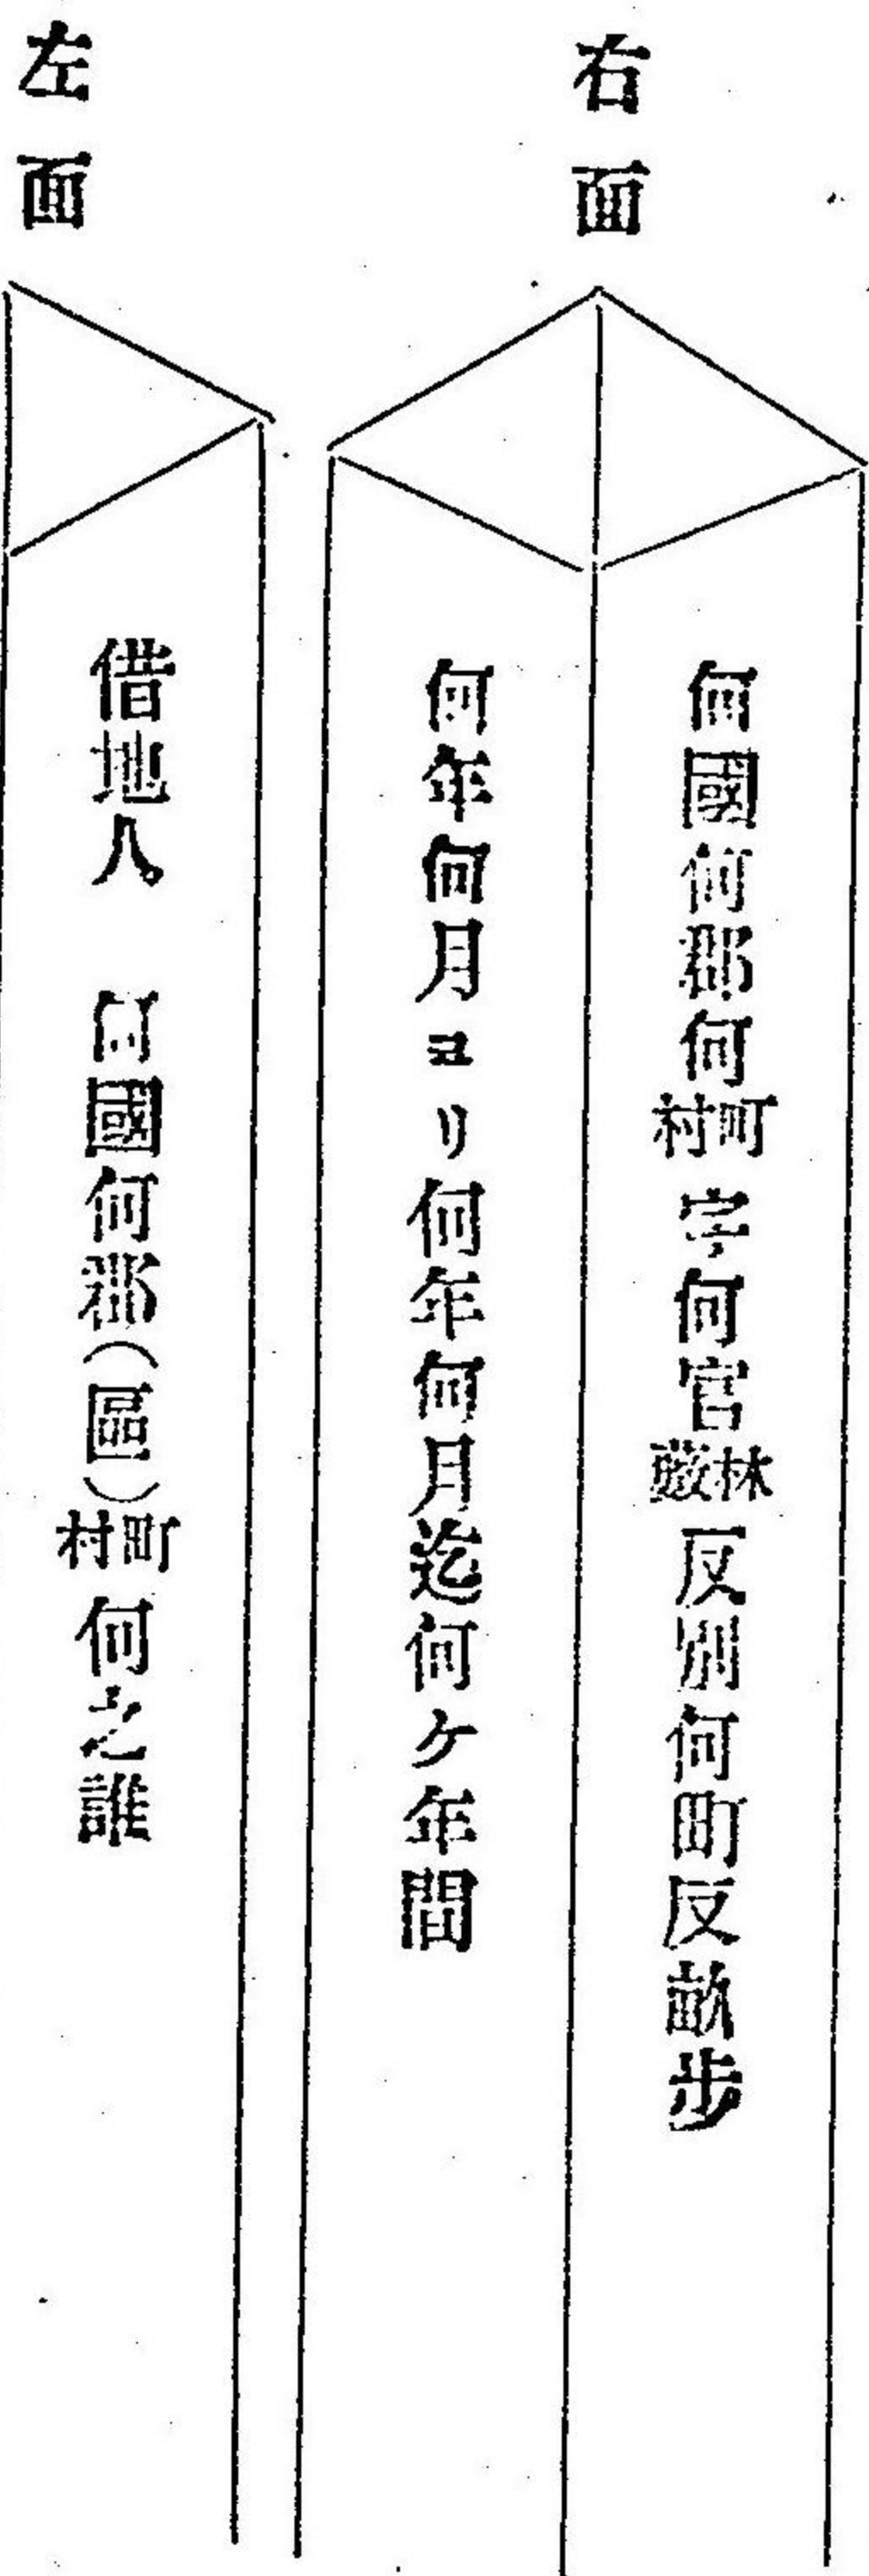 右面
何國何郡何町村字何官林藪反別何町反畝歩
何年何月ヨリ何年何月迄何ケ年間
左面
借地人 何國何郡(區)町村何之誰